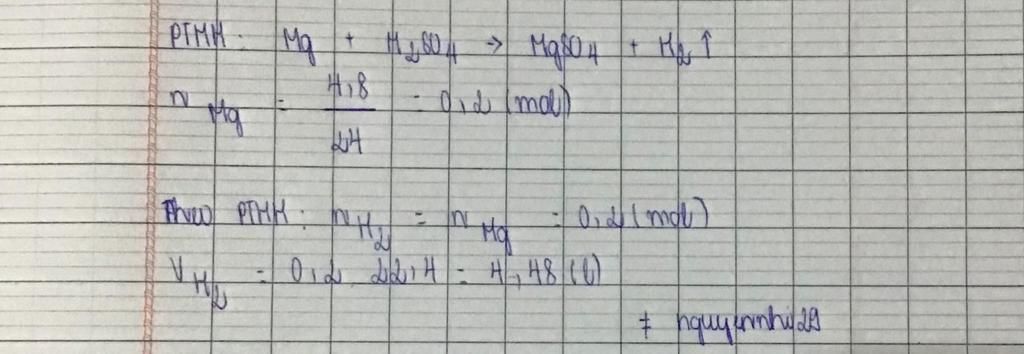 PTHH: Mg + H₂SO₄ → MgSO₄ + H₂↑
n Mg = 4,8 / 24 = 0,2 (mol)
Theo PTHH: n H₂ = n Mg = 0,2 (mol)
V H₂ = 0,2 . 22,4 = 4,48 (l)